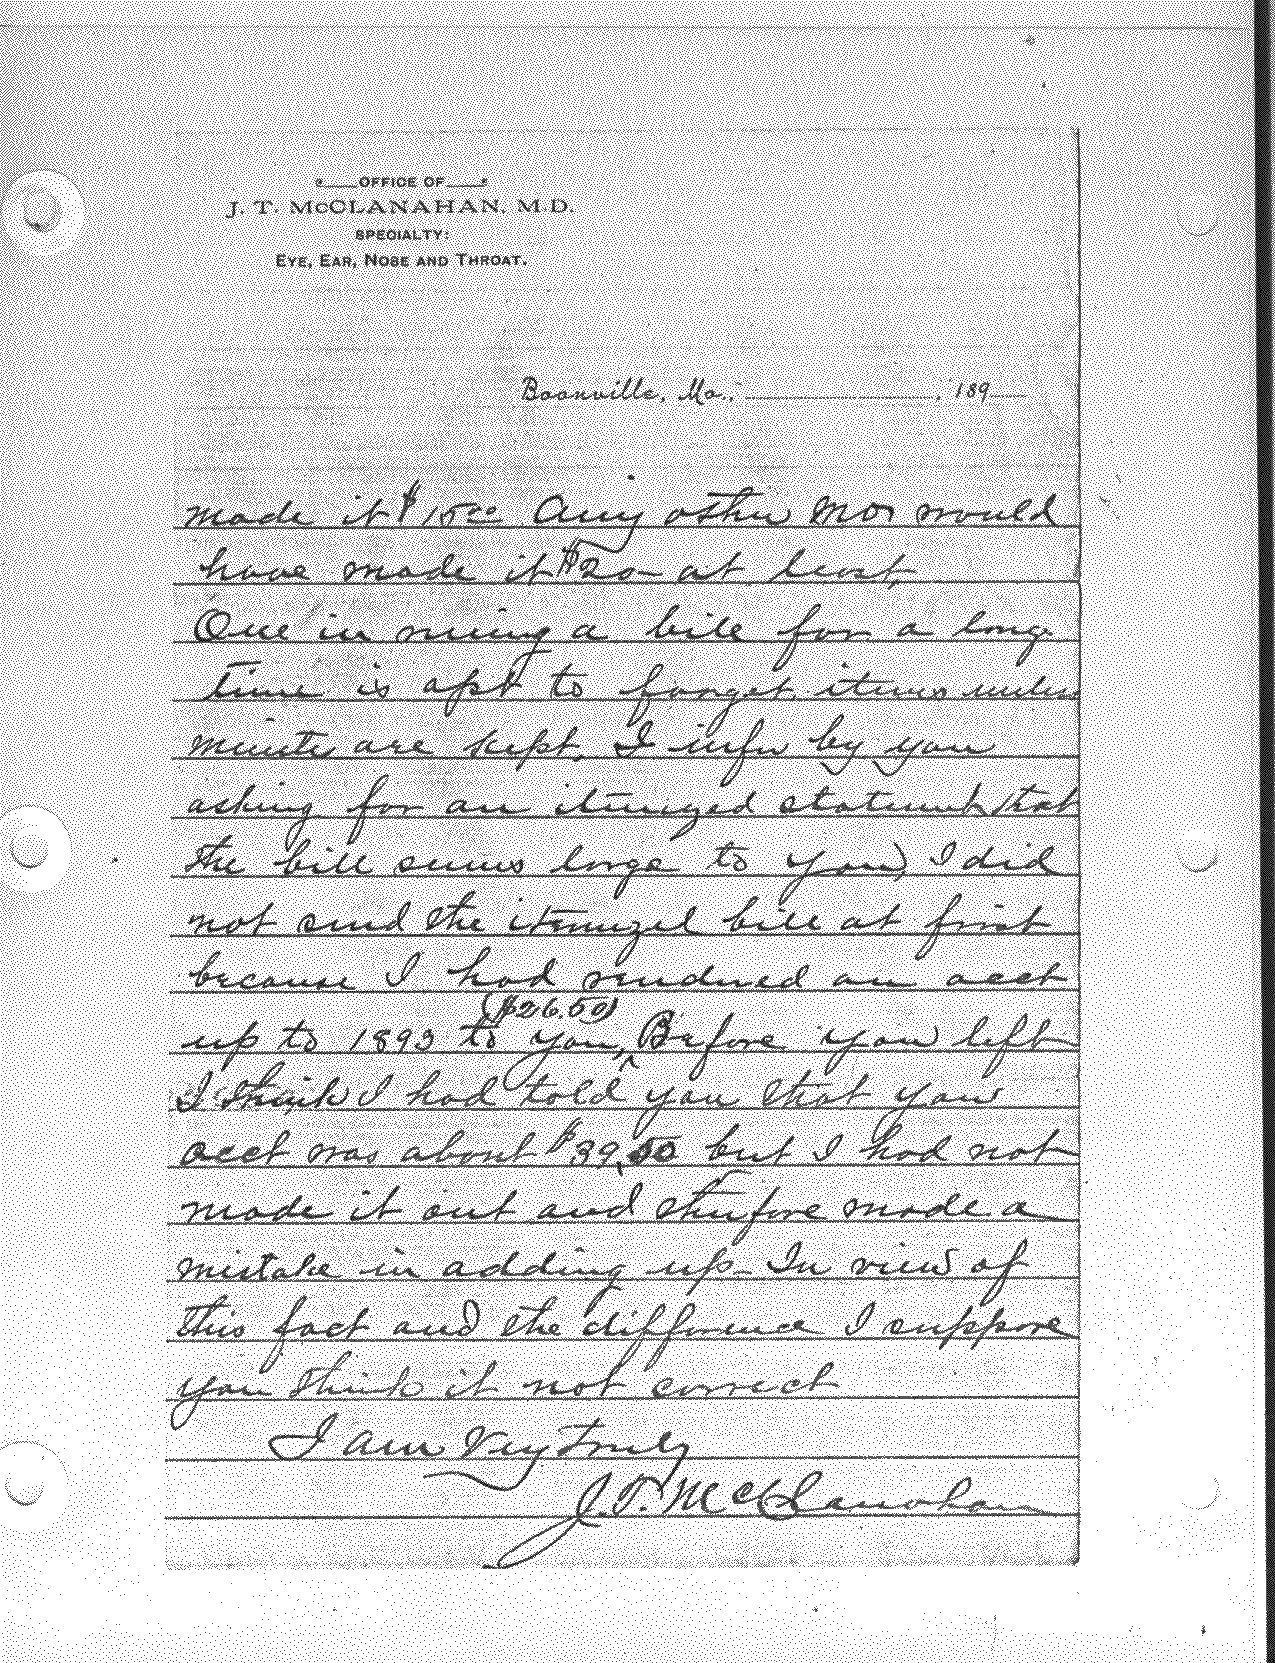 OFFICE OF
J. T. McCLANAHAN, M.D.
SPECIALTY:
EYE, EAR, NOSE AND THROAT.
Boonville, Mo., 189
made it $15.00 Any other would
have made it $20— at least,
One in runing a bill for a long
time is apt to forget items unless
minute are kept, I infer by you
asking for an itemyzed statement that
the bill seems large to you, I did
not send the itemyzed bill at first
because I had rendered an acct
($26.50)
up to 1893 to you, Before you left
I think I had told you that your
acct was about $39.50 but I had not
made it out and therefore made a
mistake in adding up— In view of
this fact and the difference I suppose
you think it not correct
I am Very Truly
J. T. McClanahan